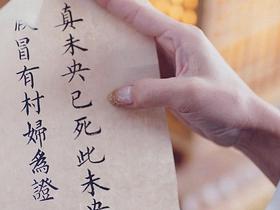 真未央已死此未央
假冒有村婦爲證